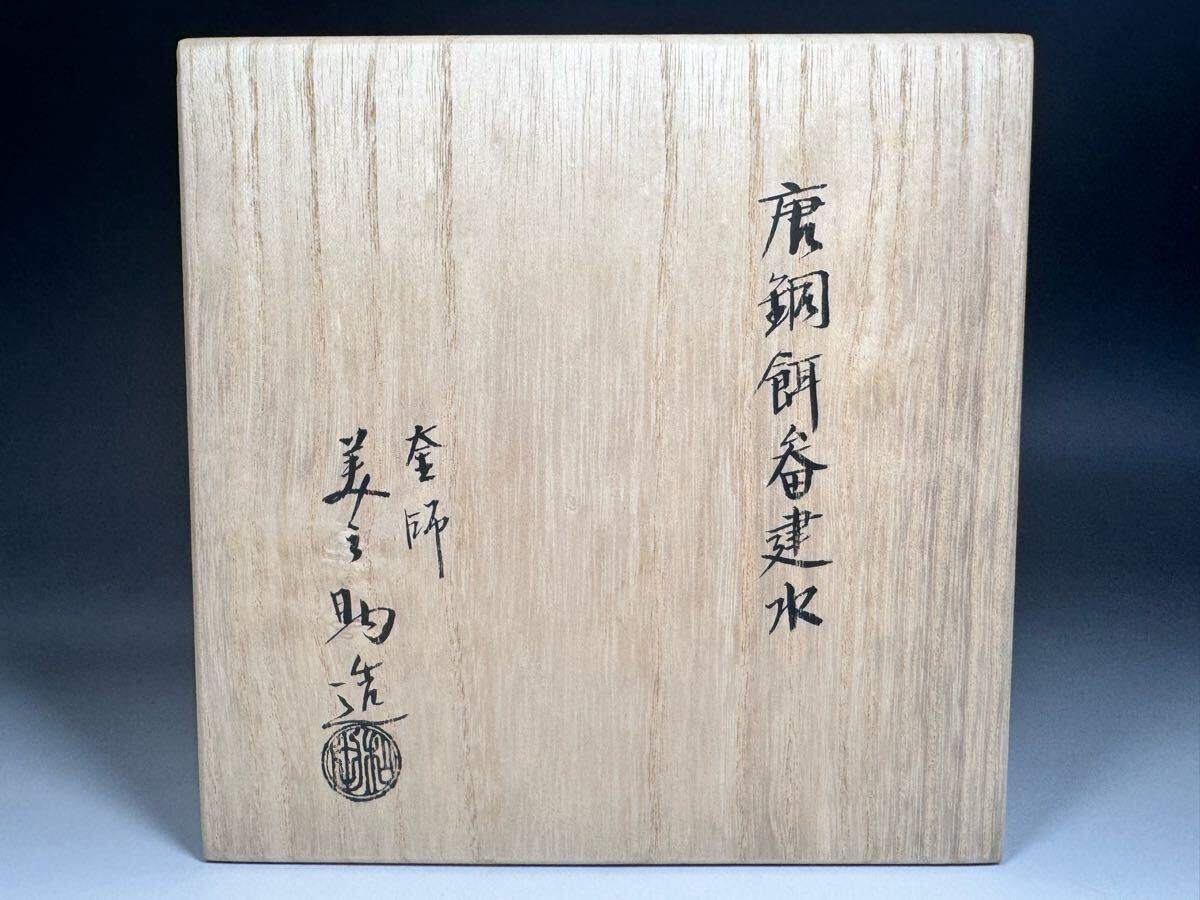 唐銅餌畚建水
釜師
美之助造